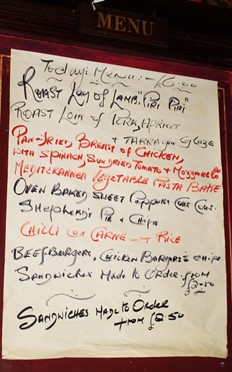 MENU
Todays Menu :- £6.00
Roast Leg of Lamb, "Piri Piri"
Roast Loin of Pork, Apricot
& Tarragon Glaze
Pan-Fried Breast of Chicken,
with Spinach, Sundried Tomato & Mozzarella
Mediterranean Vegetable Pasta Bake
Oven Baked Sweet Peppers
Shepherd's Pie & Chips
Chilli Con Carne & Rice
Beef Burgers, Chicken Burgers & Chips
Sandwiches Made to Order from
£2.50
Sandwiches Made to Order
from £2.50